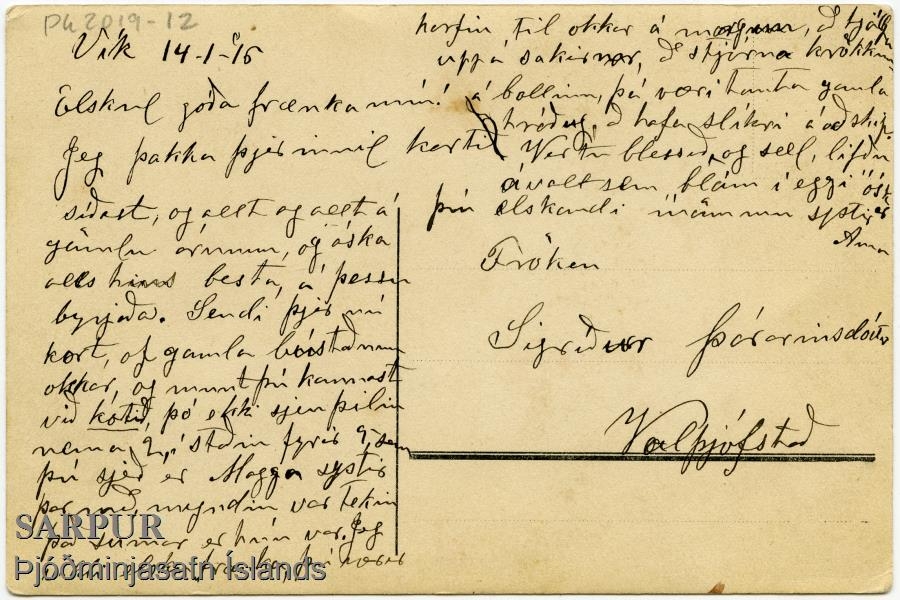 PK 2019-12
Vík 14-1-'15
Elskul góða frænka mín!
Jeg þakka þjer innil kortið
síðast, og allt og allt á
gömlu árunum, og óska
alls hins besta, á þessu
byrjaða. Sendi þjer nú
kort, af gamla bústaðnum
okkar, og munt þú kannast
við kotið, þó ekki sjeu þilin
nema 2, í staðin fyrir 9, sem
þú sjeð er Magga systir
þar með, myndin var tekin
það sumar er hún var. Jeg
horfin til okkar á morgun,
uppá sakirnar,
á bollum, þá væri tanta gamla
að hafa slíkri á að skip.
Vertu blessuð, og sæl, lifðu
ávalt sem blóm í eggi ósk
þín elskandi mömmu systir
Anna
Fröken
Sigríður Þórarinsdóttir
Valþjófstað
SARPUR
Þjóðminjasafn Íslands